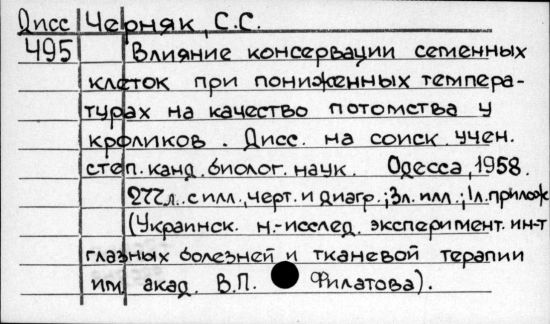 Дисс Черняк, С.С.
495 Влияние консервации семенных
клеток при пониженных темпера-
турах на качество потомства у
кроликов. Дисс. на соиск. учен.
степ. канд. биолог. наук. Одесса, 1958.
277л. с илл., черт. и диагр.; 3л. илл.; 1л. прилож
(Украинск. н.-исслед. эксперимент. ин-т
глазных болезней и тканевой терапии
им. акад. В.П. Филатова).